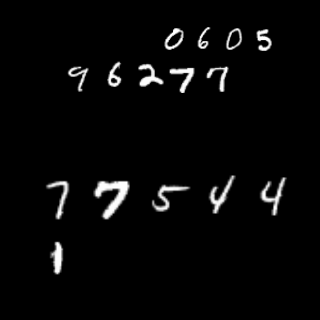 0605
96277
77544
1